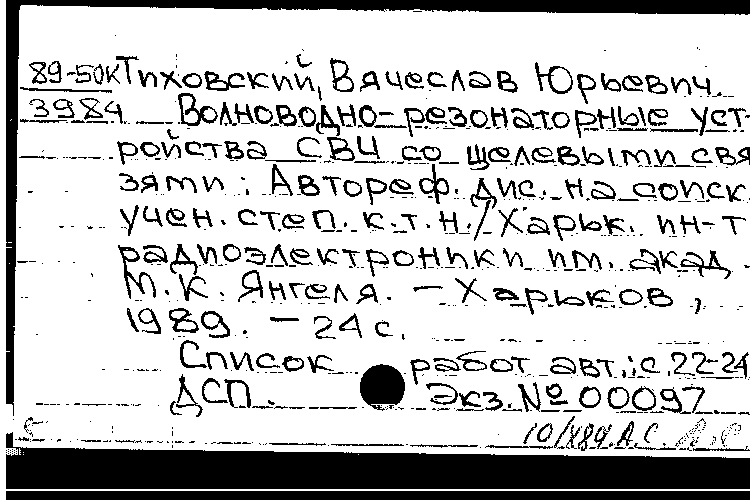 89-50к Тиховский, Вячеслав Юрьевич.
3984 Волноводно-резонаторные уст-
ройства СВЧ со щелевыми свя
зями: Автореф. дис. на соиск.
учен. степ. к.т.н./Харьк. ин-т
радиоэлектроники им. акад.
М.К. Янгеля. – Харьков,
1989. – 24 с.
Список работ авт.: с. 22-24
ДСП. Экз. № 00097
А.С.